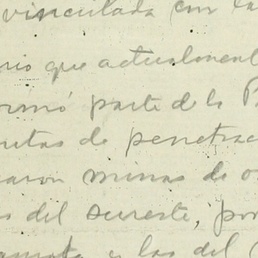 vinculada con la
que actualment
formó parte de la P
rutas de penetrac
minas de o
s del sureste, por
y las del